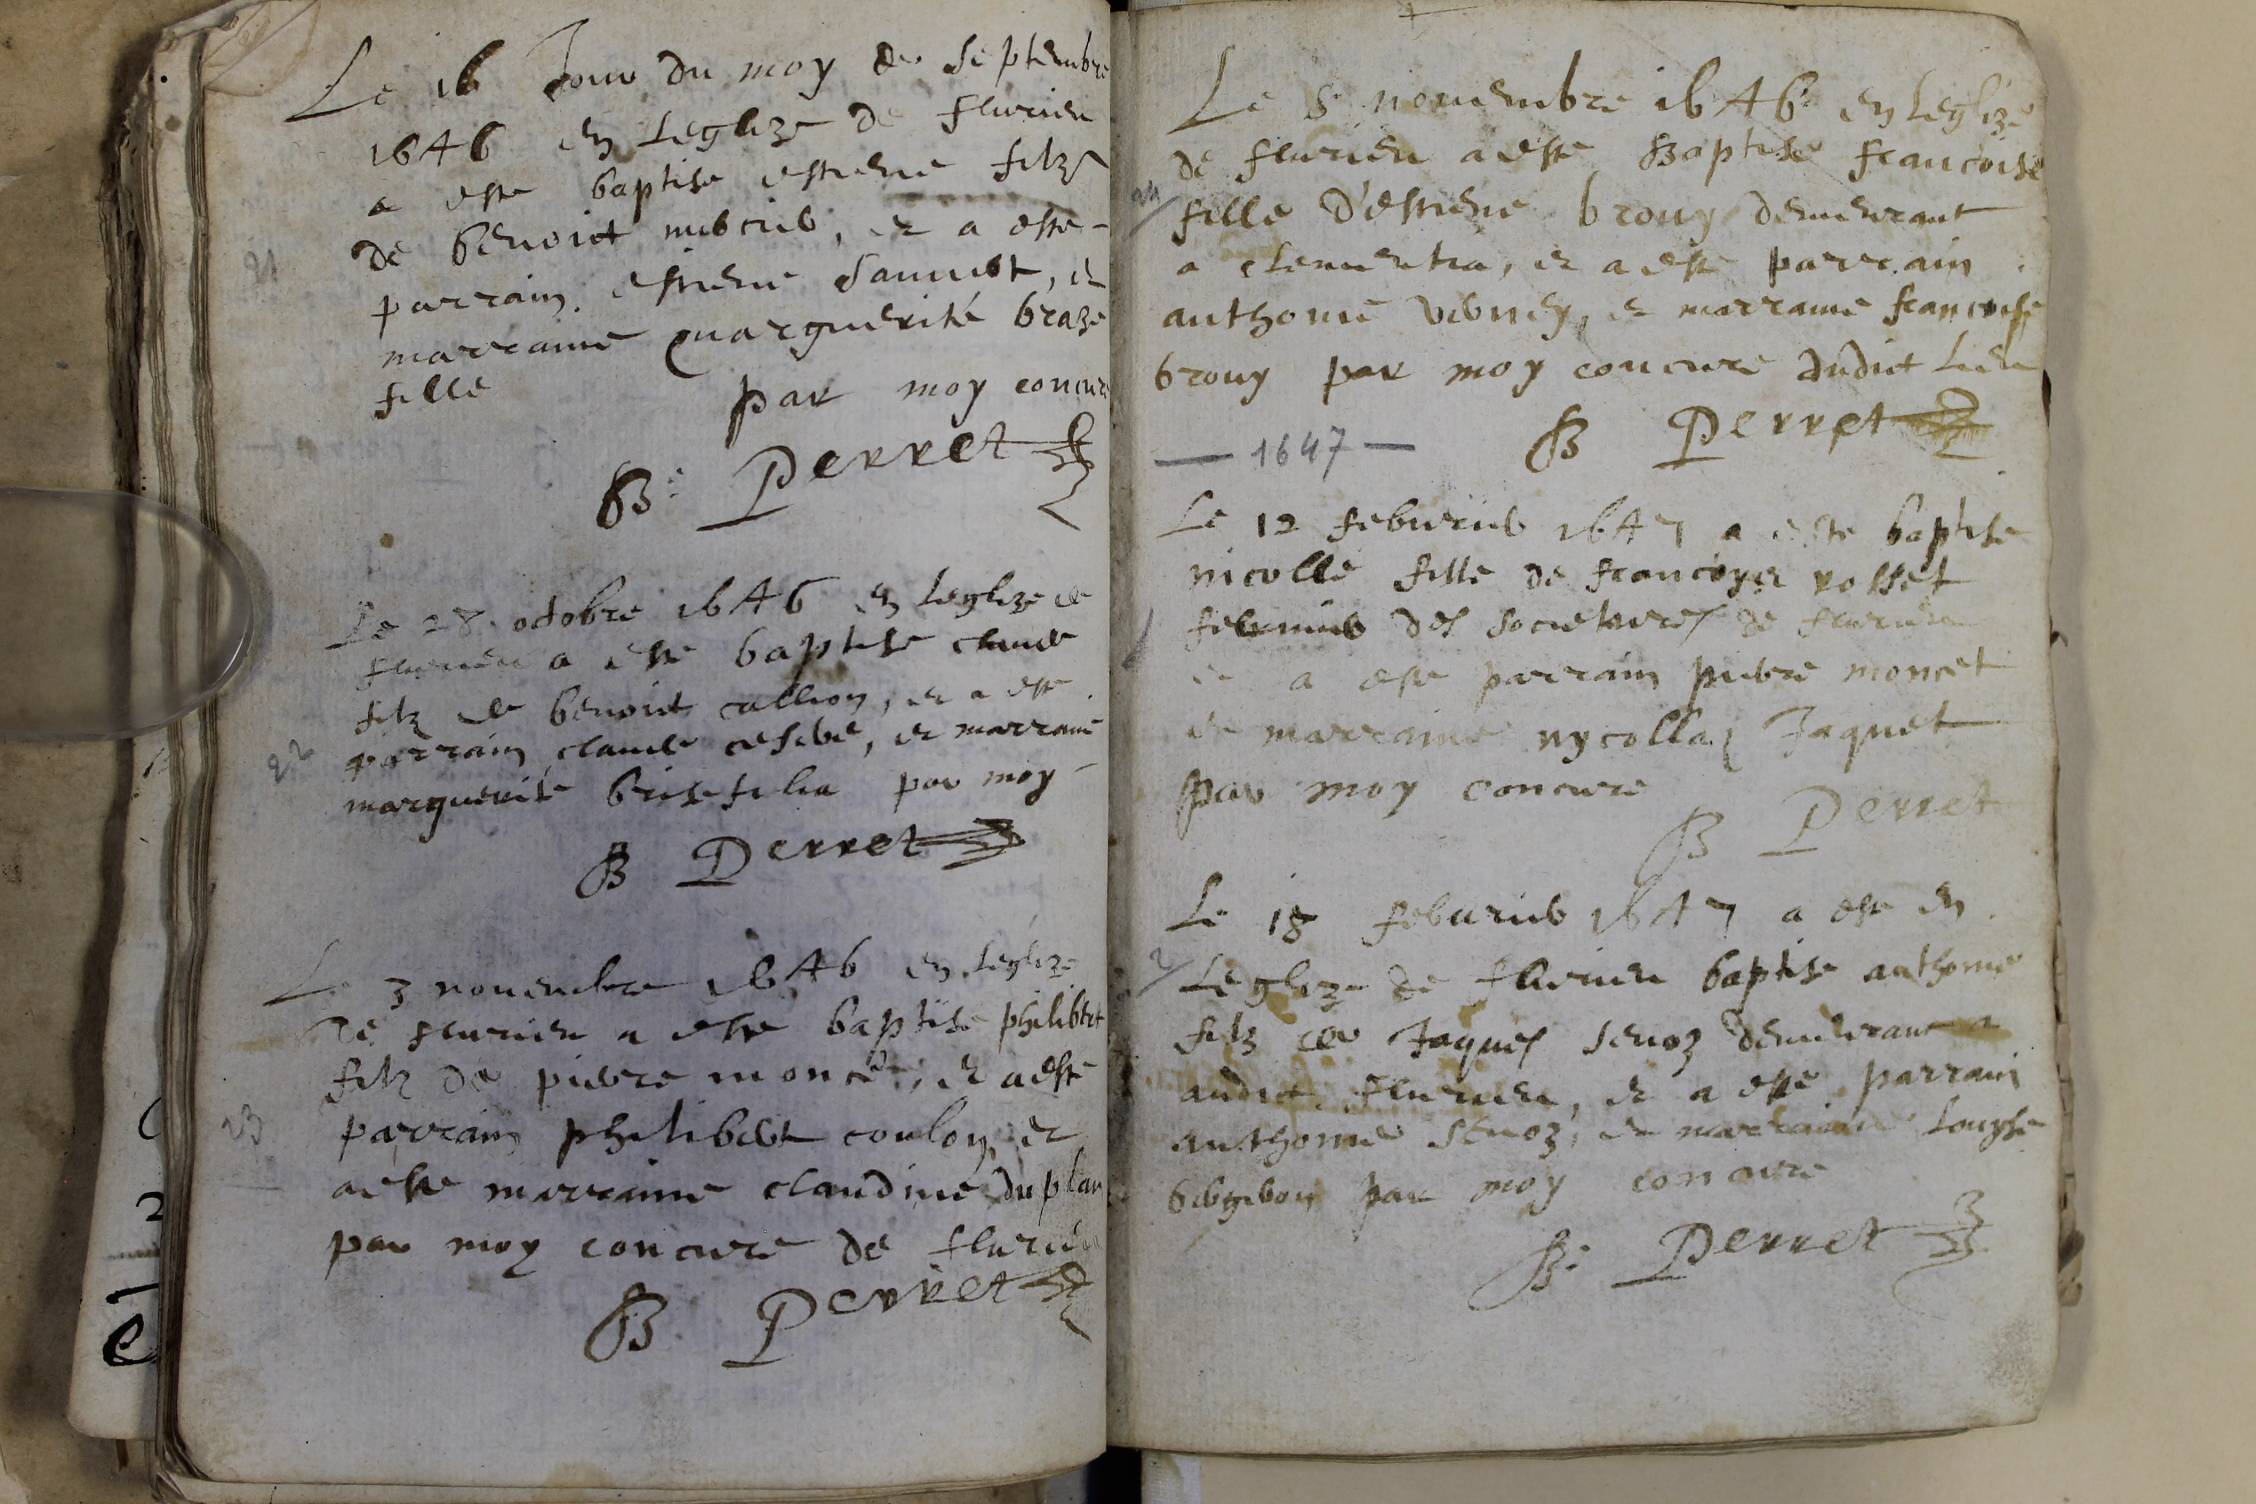 Le 16 Jour du moy de septembre
1646 en leglize de flurieu
a este baptise estiene filz
de benoict mercier, et a este
parrain estiene sauuet, et
marraine marguerite braze
fille par moy concure
B. Perret
21
Le 28 octobre 1646 en leglize de
flurieu a este baptise claude
filz de benoict callion, et a este
parrain claude, et marraine
marguerite par moy
B Perret
22
Le 3 nouembre 1646 en leglize
de flurieu a este baptise philibert
filz de pierre moncet, et a este
parrain philibert coulon, et
a este marraine claudine du plan
par moy concure de flurieu
B Perret
23
Le 8 nouembre 1646 en leglize
de flurieu a este Baptise francoise
24
fille d'estiene brouy demeurant
a clementia, et a este parrain
anthoine verney, et marraine francoise
brouy par moy concure dudict lieu
B Perret
1647
Le 12 feburier 1647 a este baptise
nicolle fille de francoys rosset
1
fermier des societaires de flurieu
et a este parrain pierre moncet
et marraine nycollas Jaquet
par moy concure
B Perret
Le 18 feburier 1647 a este en
2
Leglize de flurieu baptise anthoine
filz de Jaques senoz demeurant a
audict flurieu, et a este parrain
anthoine senoz, et marraine louyse
bergeron par moy concure
B. Perret